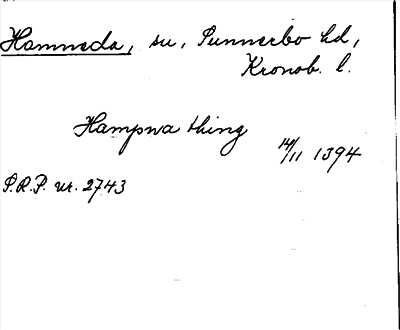 Hamneda, su, Sunnerbo hd,
Kronob. l.
Hampna thing
14/11 1394
P.R.P. nr. 2743